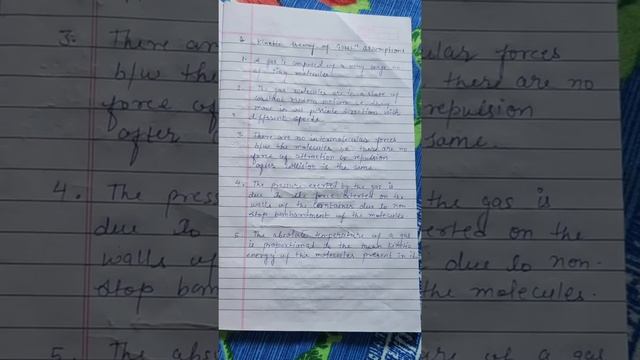 Kinetic theory of gases assumptions
1. A gas is composed of a very large no
of tiny molecules
2. The gas molecules are in a state of
constant random motion i.e. they
move in all possible directions with
different speeds.
3. There are no intermolecular forces
b/w the molecules i.e. there are no
force of attraction or repulsion
after collision is the same.
4. The pressure exerted by the gas is
due to the force exerted on the
walls of the container due to non-
stop bombardment of the molecules
5. The absolute temperature of a gas
is proportional to the mean kinetic
energy of the molecules present in it
3. There are
b/w the
force of
after
4. The press
due to
walls of
stop bom
5. The abso
ular forces
there are no
repulsion
same.
the gas is
erted on the
due to non-
the molecules.
ure of a gas